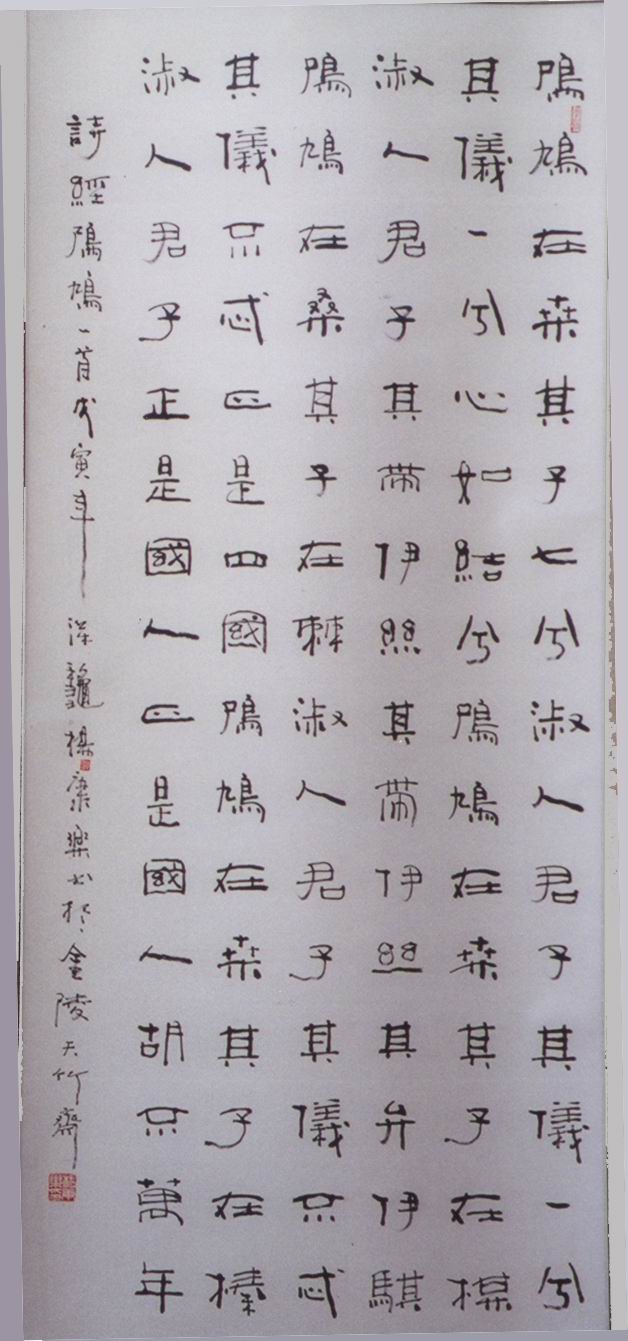 鳲鳩在桒其子七兮淑人君子其儀一兮
其儀一兮心如結兮鳲鳩在桒其子在楳
淑人君子其帶伊絲其帶伊丝其弁伊騏
鳲鳩在桑其子在棘淑人君子其儀不忒
其儀不忒正是四國鳲鳩在桒其子在榛
淑人君子正是國人正是國人胡不萬年
詩經鳲鳩一首戊寅年深龝楳康樂书於金陵天竹齋